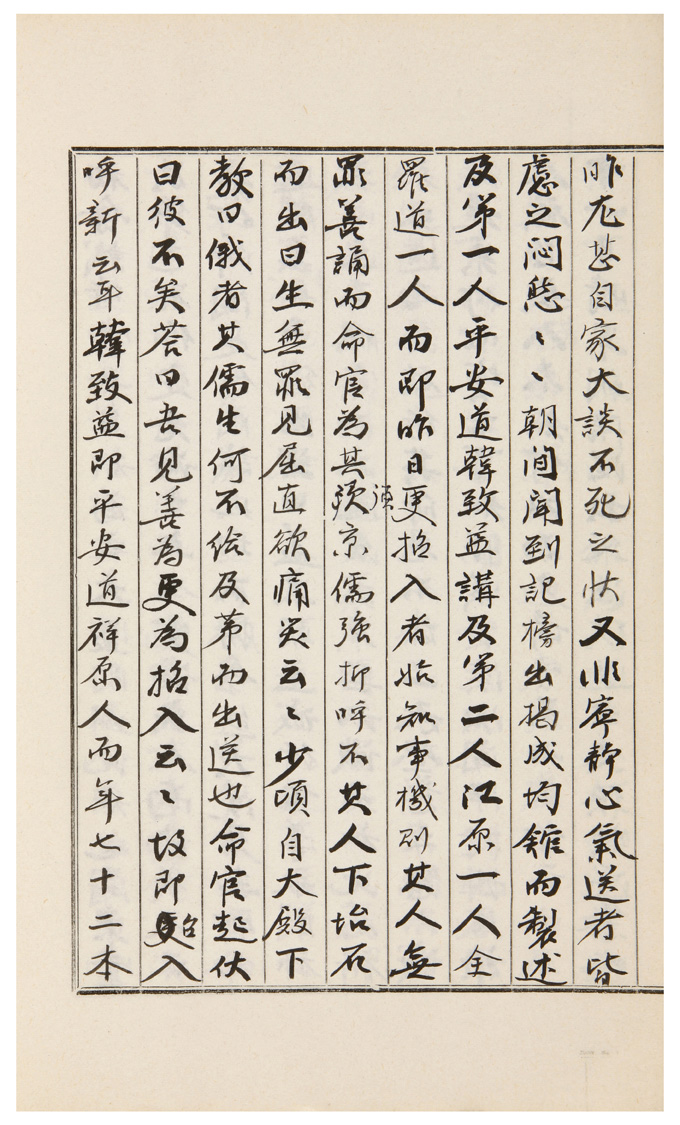 昨尤甚自家大談不死之狀又非寧靜心氣送者皆
慮之悶悶態〻〻朝間聞到記榜出揭成均館而製述
及第一人平安道韓致益講及第二人江原一人全
羅道一人而即昨日更招入者始知事機則其人無
罪善誦而命官為其預京儒強抑呼不其人下抬石
而出曰生無罪見屈直欲痛哭云〻少頃自大殿下
教曰俄者其儒生何不給及第而出送也命官起伏
曰彼不矣答曰吾見善為更為招入云〻故即更招入
呼新云耳韓致益即平安道祥原人而年七十二本